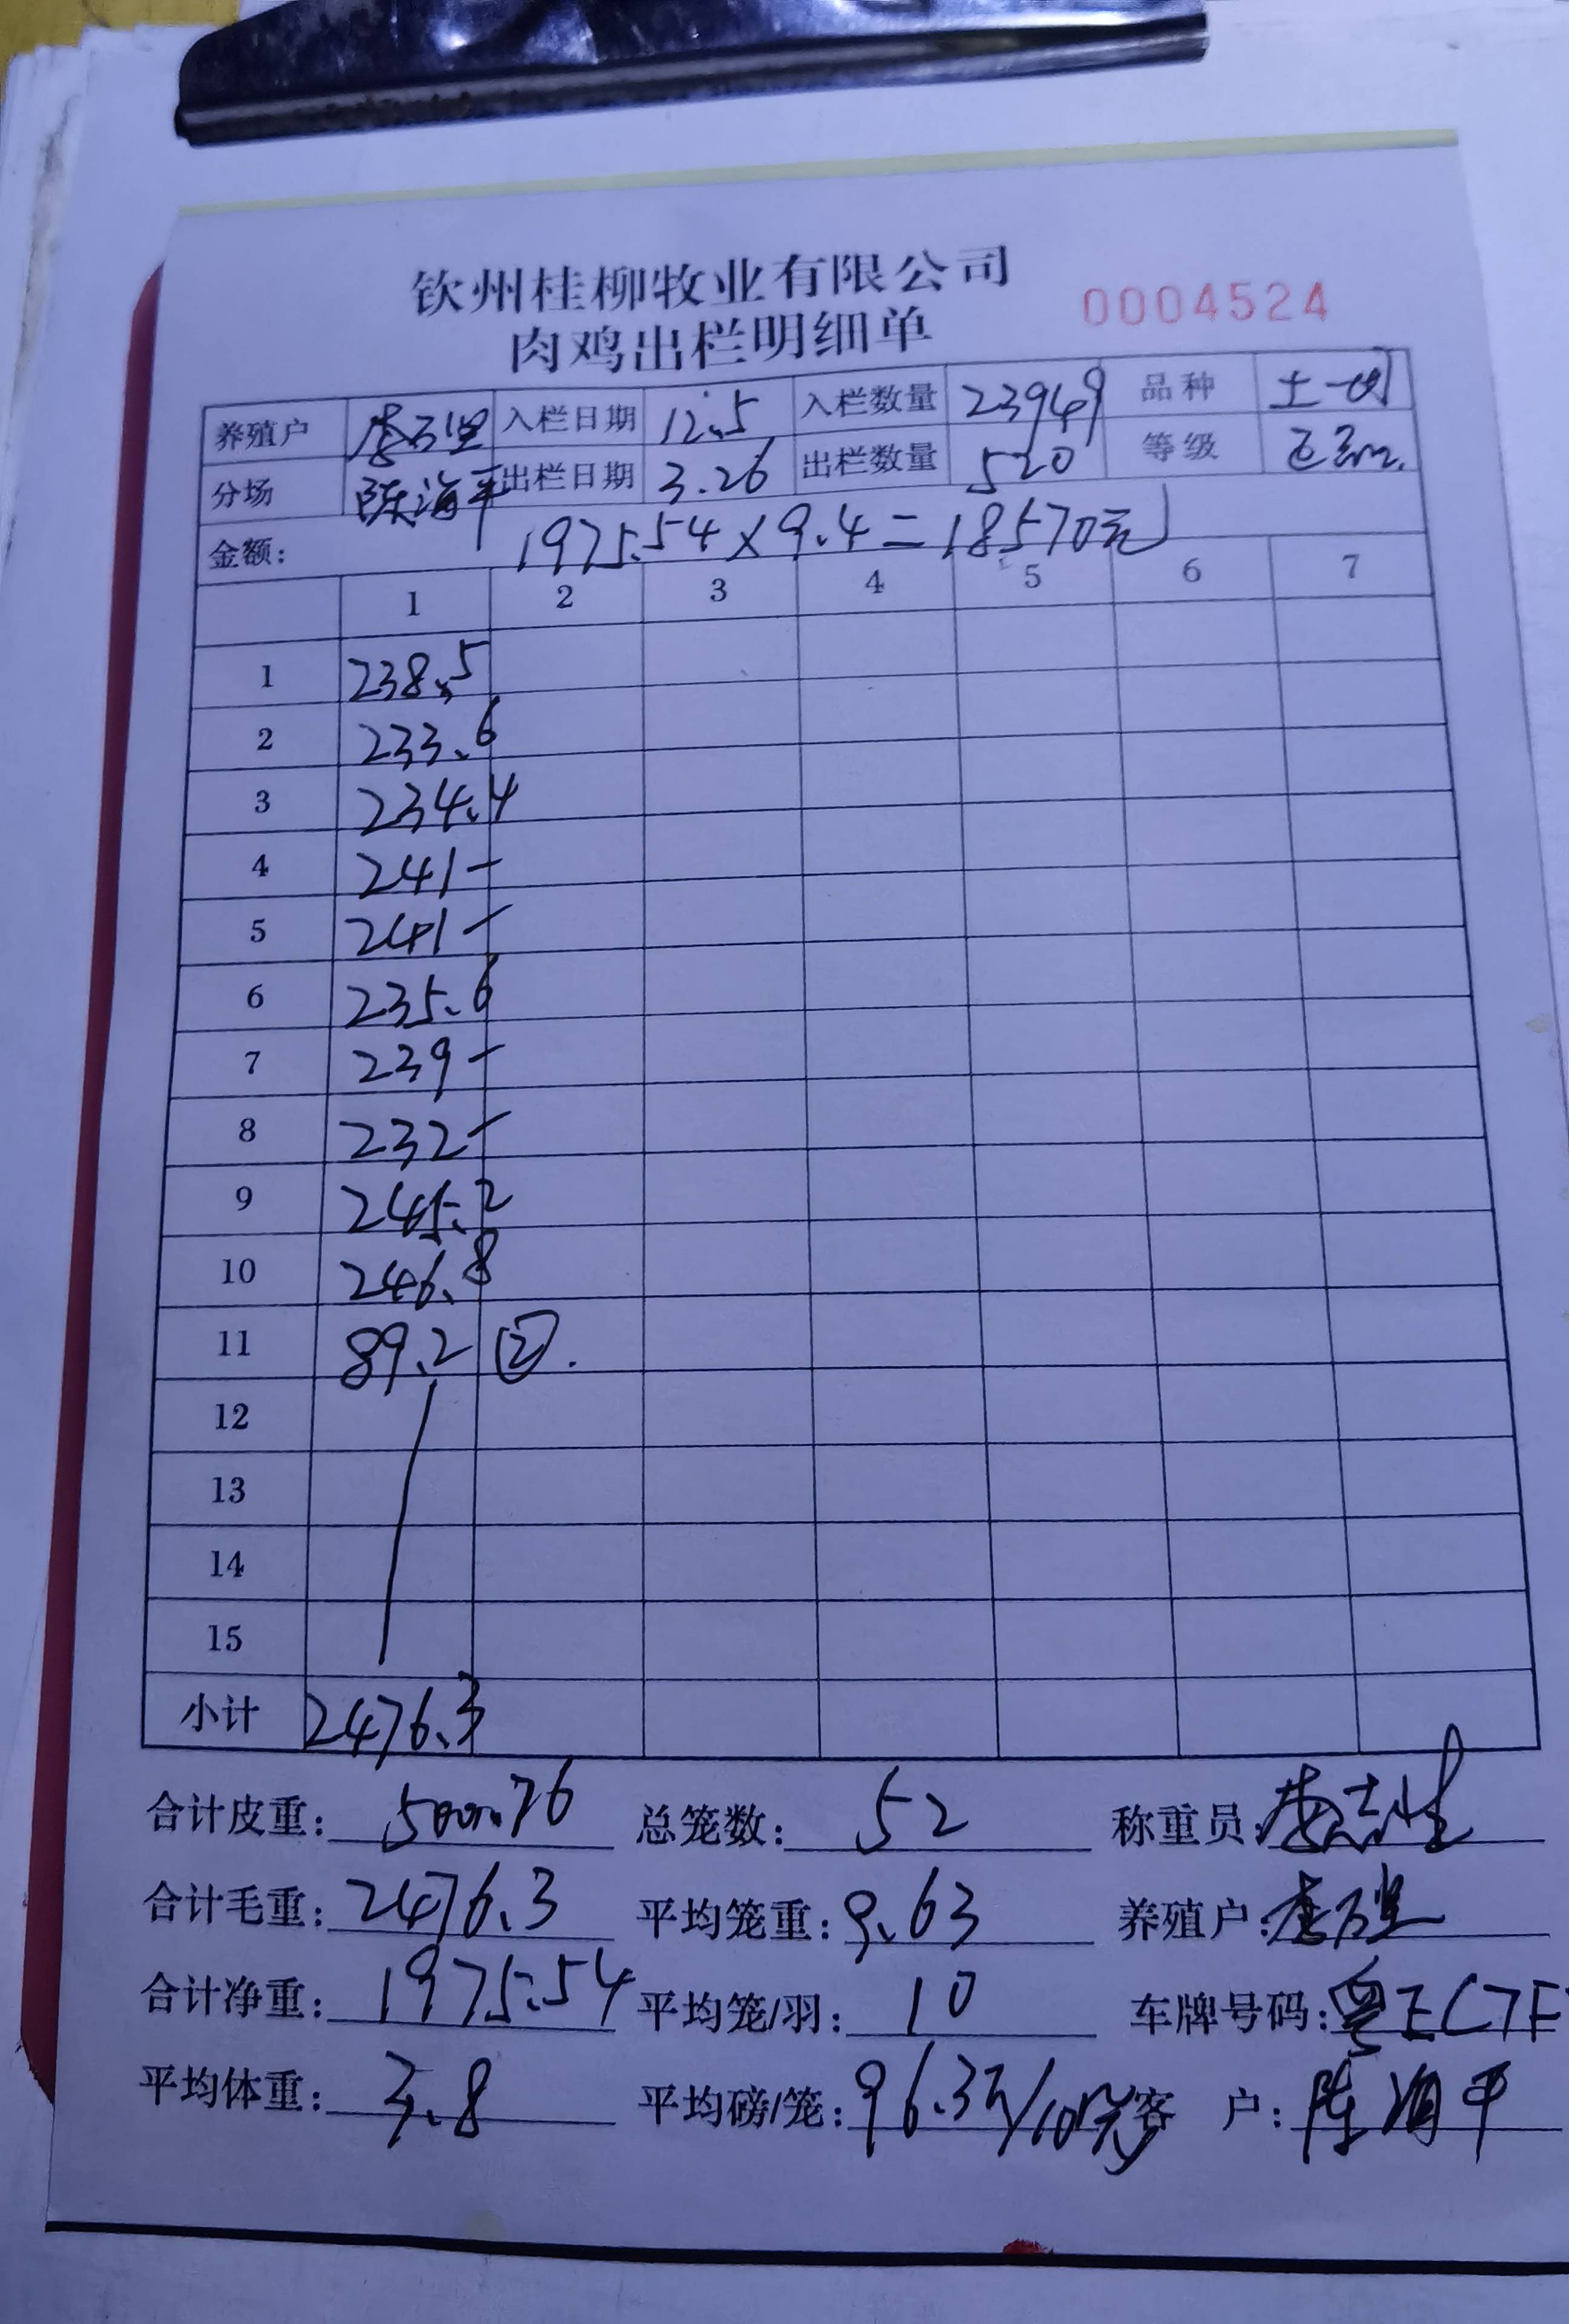 钦州桂柳牧业有限公司
肉鸡出栏明细单 0004524
养殖户 入栏日期 12.5 入栏数量 23949 品种 土一
分场 陈海平 出栏日期 3.26 出栏数量 520 等级
金额: 1975.54×9.4=18570元
1 2 3 4 5 6 7
1 238.5
2 233.6
3 234.4
4 241-
5 241-
6 235.6
7 239-
8 232-
9 245.2
10 246.8
11 89.2 ②.
12
13
14
15
小计 2476.3
合计皮重: 500.76 总笼数: 52 称重员:
合计毛重: 2476.3 平均笼重: 9.63 养殖户:
合计净重: 1975.54 平均笼/羽: 10 车牌号码: 粤E
平均体重: 3.8 平均磅/笼: 96.3 客 户: 陈海平